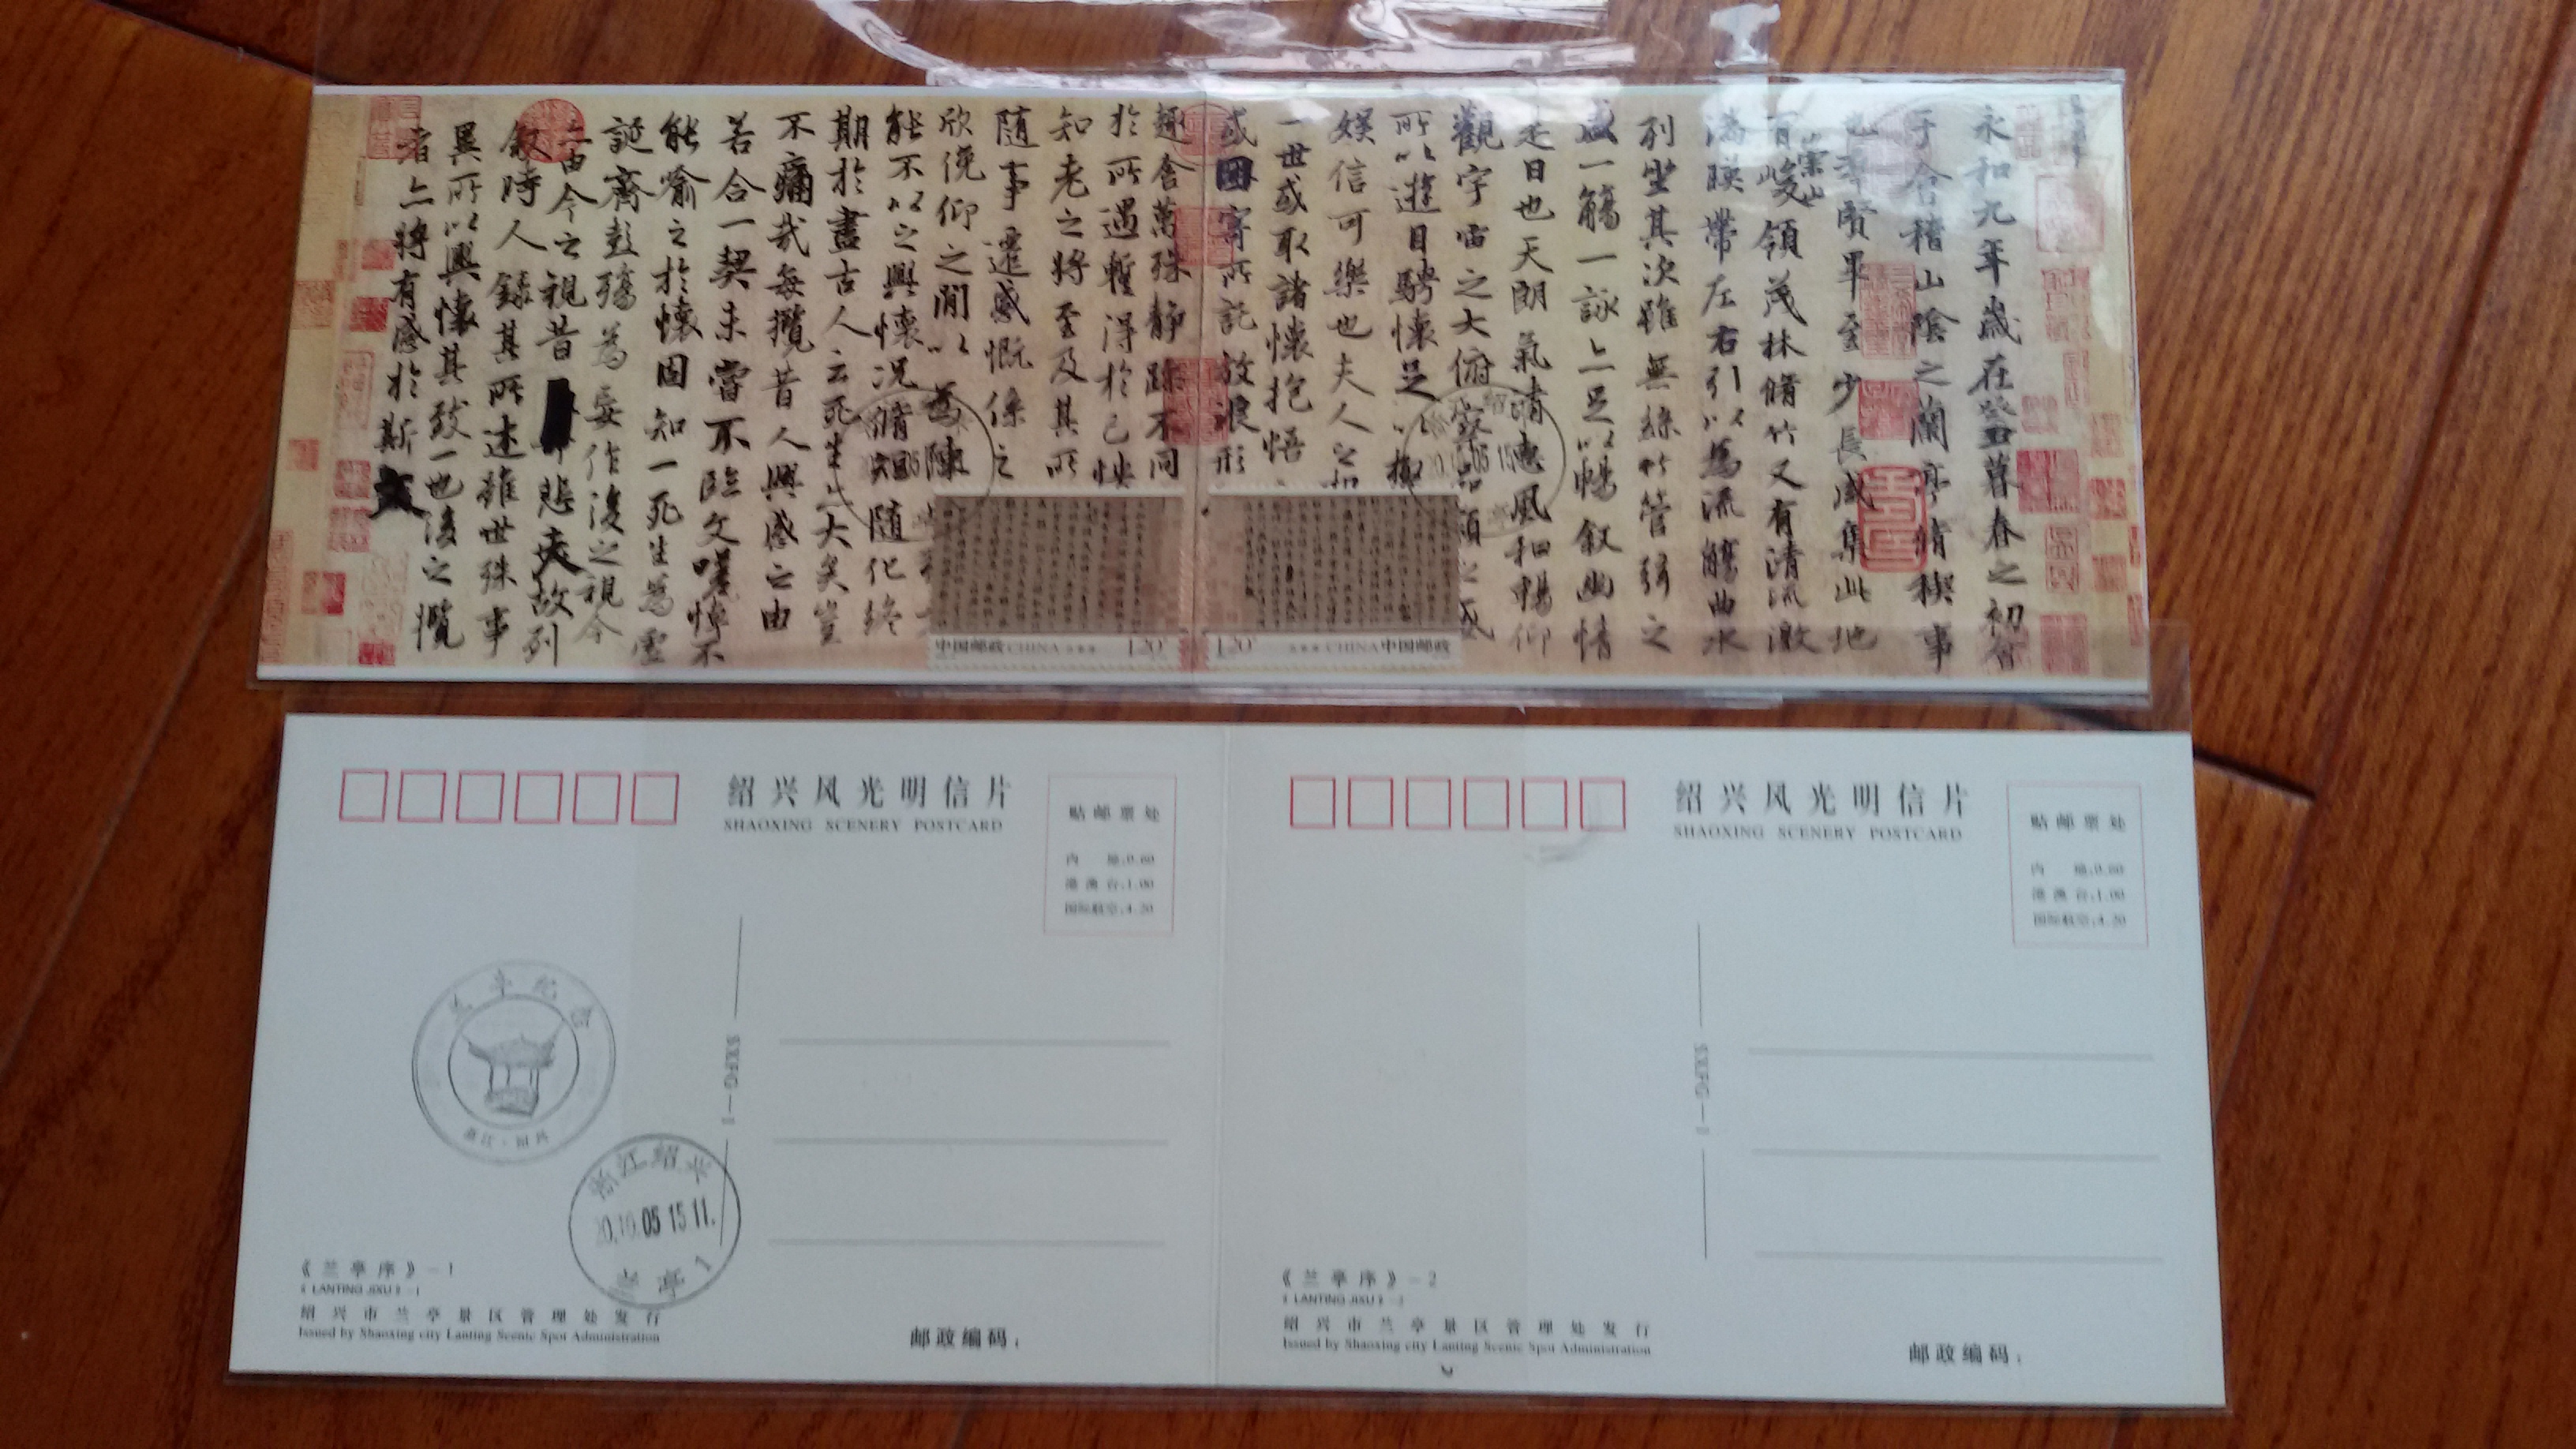 永和九年歲在癸丑暮春之初會
于會稽山陰之蘭亭脩稧事
也群賢畢至少長咸集此地
有崇山峻領茂林脩竹又有清流激
湍暎帶左右引以為流觴曲水
列坐其次雖無絲竹管弦之
盛一觴一詠亦足以暢叙幽情
是日也天朗氣清惠風和暢仰
觀宇宙之大俯察品類之盛
所以遊目騁懷足以極
娛信可樂也夫人之相
一世或取諸懷抱悟
或因寄所託放浪形
趣舍萬殊静躁不同
於所遇暫得於己怏
知老之將至及其所
隨事遷感慨係之
欣俛仰之閒以為陳
能不以之興懷況脩短隨化終
期於盡古人云死生亦大矣豈
不痛哉每攬昔人興感之由
若合一契未嘗不臨文嗟悼不
能喻之於懷固知一死生為虛
誕齊彭殤為妄作後之視今
亦由今之視昔悲夫故列
叙時人錄其所述雖世殊事
異所以興懷其致一也後之攬
者亦將有感於斯文
中国邮政 CHINA 1.20
1.20 CHINA 中国邮政
绍兴风光明信片
SHAOXING SCENERY POSTCARD
贴邮票处
内 地:0.60
港澳台:1.00
国际航空:4.20
SXFG—1
浙江·绍兴
浙江绍兴
10.05 15 11.
兰亭 1
《兰亭序》-1
《LANTING JIXU》-1
绍兴市兰亭景区管理处发行
Issued by Shaoxing city Lanting Scenic Spot Administration
邮政编码:
绍兴风光明信片
SHAOXING SCENERY POSTCARD
贴邮票处
内 地:0.60
港澳台:1.00
国际航空:4.20
SXFG—1
《兰亭序》-2
《LANTING JIXU》-2
绍兴市兰亭景区管理处发行
Issued by Shaoxing city Lanting Scenic Spot Administration
邮政编码: